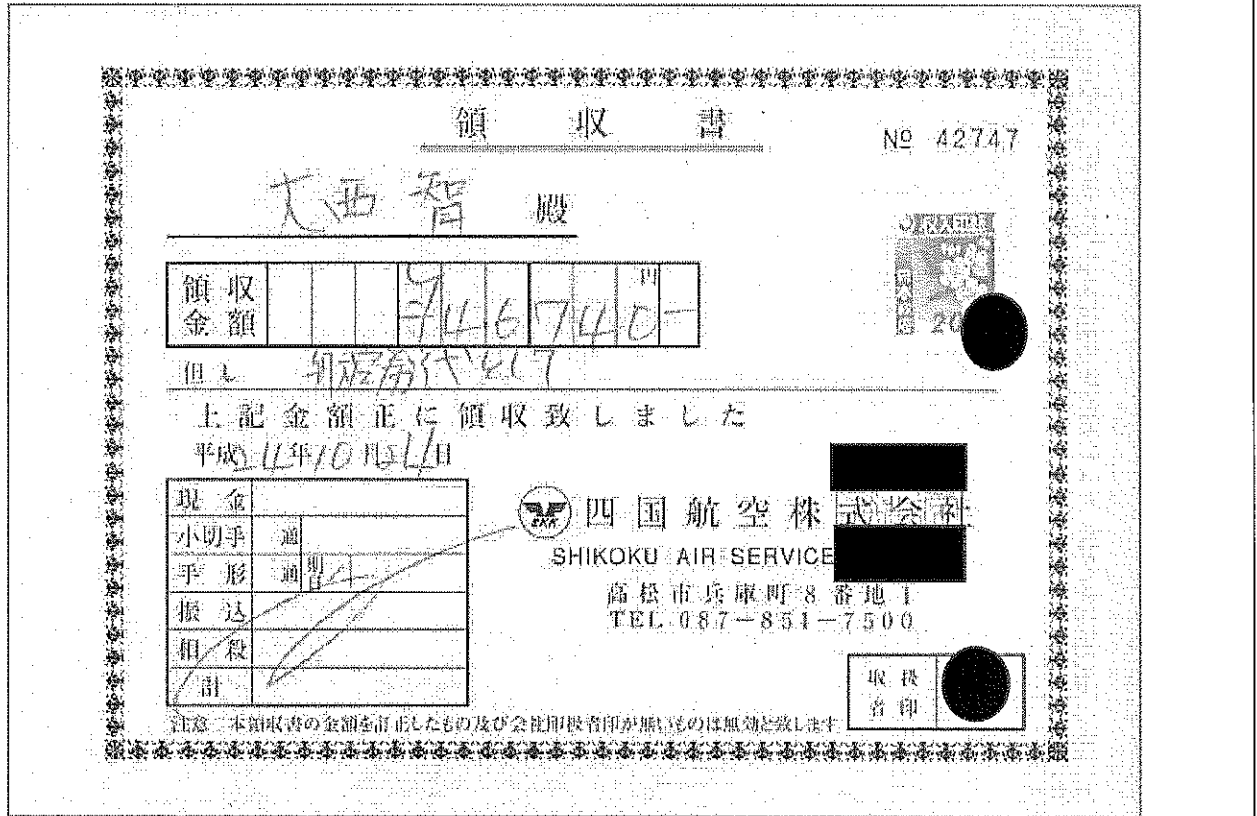 領収書
№ 42747
大西智 殿
領収金額 746740- 円
但し 航空券代として
上記金額正に領収致しました
平成24年10月24日
現金
小切手 通
手形 通 明日
振込
相殺
計
SKK 四国航空株式会社
SHIKOKU AIR SERVICE
高松市兵庫町8番地1
TEL 087-851-7500
取扱者印
注意 本領収書の金額を訂正したもの及び会社印扱者印が無いものは無効と致します